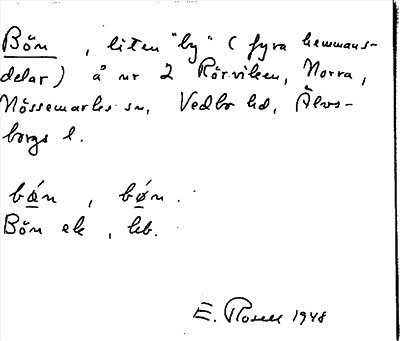 Bön , liten "by" (fyra hemmans-
delar) å nr 2 Rörviken, Norra,
Nössemarks sn, Vedbo hd, Älvs-
borgs l.
bǽn , bǿn .
Bön ek , kb.
E. Rosell 1948